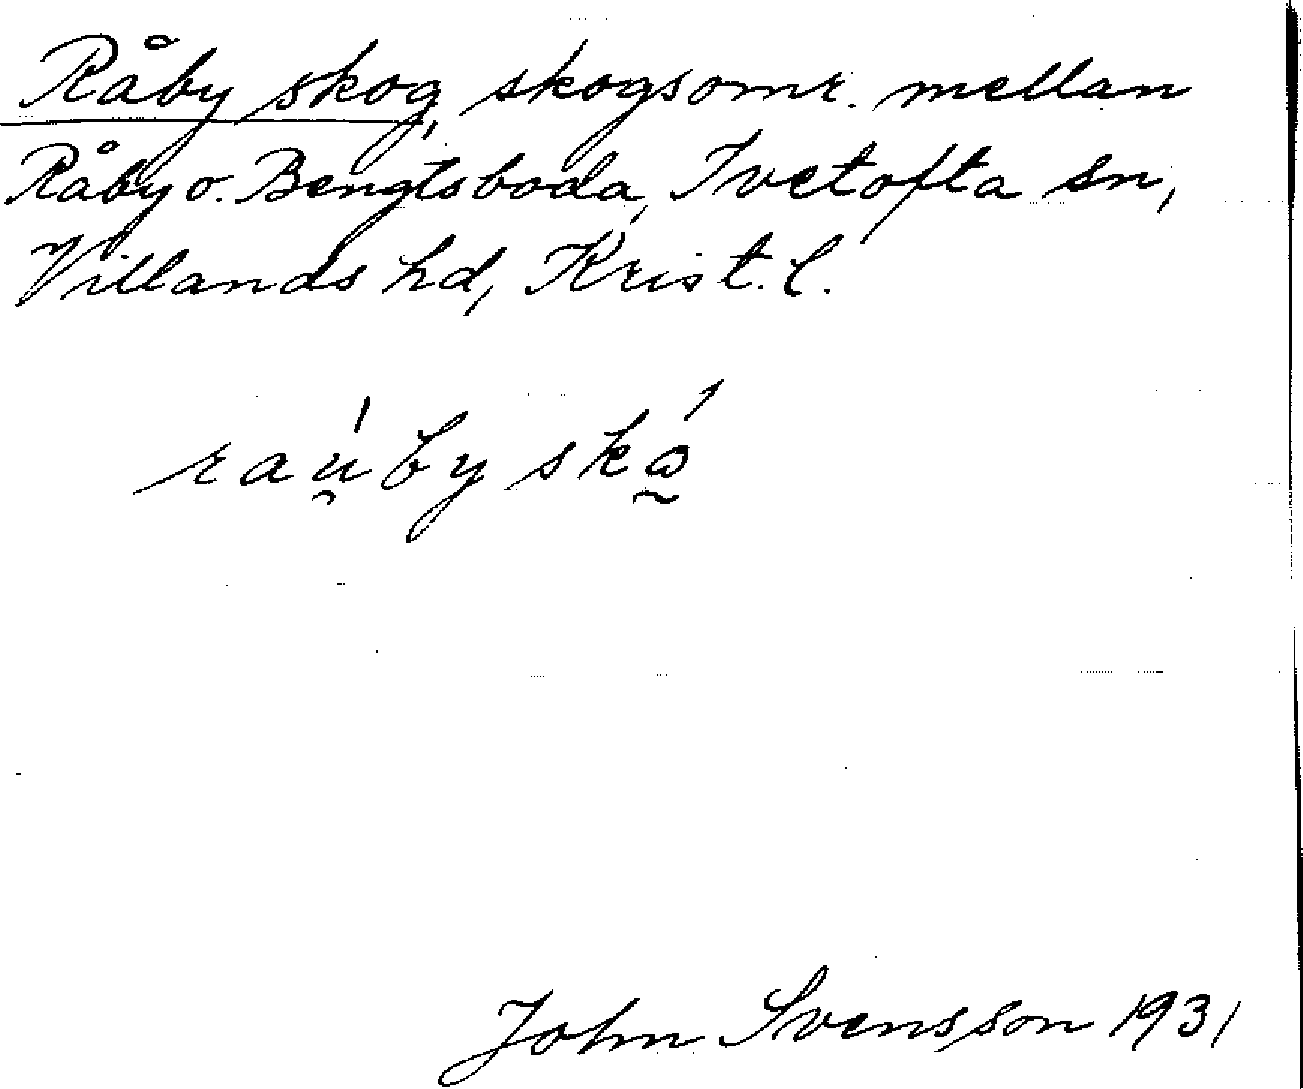 Råby skog, skogsomr. mellan
Råby o. Bengtsboda, Ivetofta sn,
Villands hd, Krist. l.
raúby skǻ
John Svensson 1931